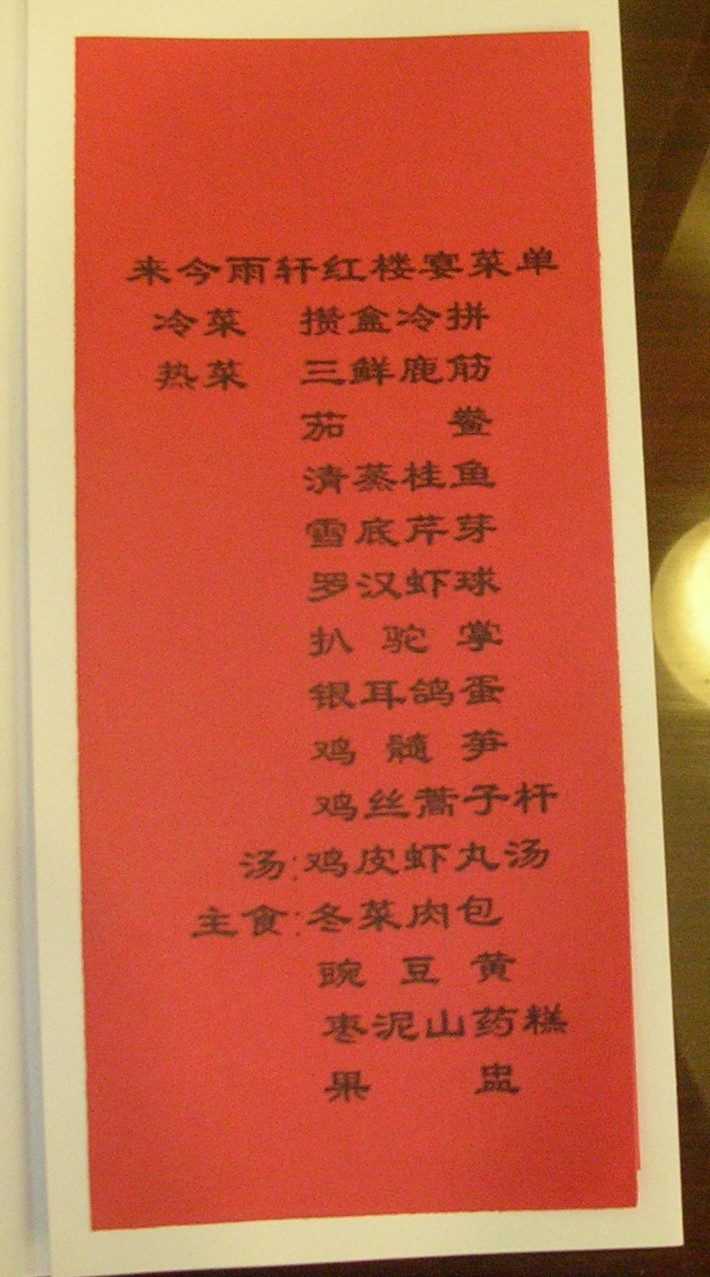 来今雨轩红楼宴菜单
冷菜 攒盒冷拼
热菜 三鲜鹿筋
茄鲞
清蒸桂鱼
雪底芹芽
罗汉虾球
扒驼掌
银耳鸽蛋
鸡髓笋
鸡丝蒿子杆
汤:鸡皮虾丸汤
主食:冬菜肉包
豌豆黄
枣泥山药糕
果盅